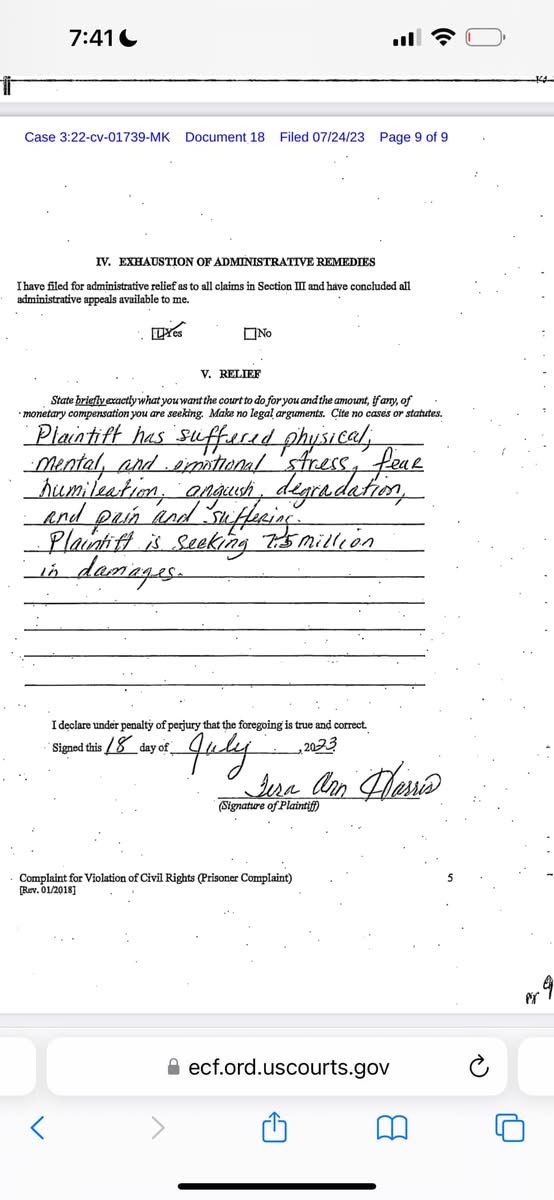 7:41
Case 3:22-cv-01739-MK Document 18 Filed 07/24/23 Page 9 of 9
IV. EXHAUSTION OF ADMINISTRATIVE REMEDIES
I have filed for administrative relief as to all claims in Section III and have concluded all
administrative appeals available to me.
Yes No
V. RELIEF
State briefly exactly what you want the court to do for you and the amount, if any, of
monetary compensation you are seeking. Make no legal arguments. Cite no cases or statutes.
Plaintiff has suffered physical,
mental, and emotional stress, fear
humileation, anguish, degradation,
and pain and suffering.
Plaintiff is seeking 7.5 million
in damages.
I declare under penalty of perjury that the foregoing is true and correct.
Signed this 18 day of July, 2023
Tera Ann Harris
(Signature of Plaintiff)
Complaint for Violation of Civil Rights (Prisoner Complaint) 5
[Rev. 01/2018]
ecf.ord.uscourts.gov